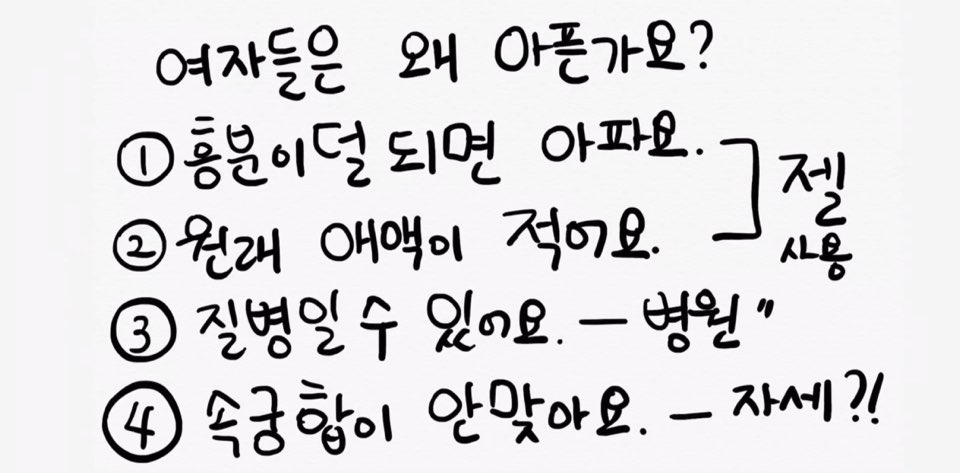 여자들은 왜 아픈가요?
① 흥분이 덜 되면 아파요.
② 원래 애액이 적어요.
젤
사용
③ 질병일 수 있어요. — 병원"
④ 속궁합이 안맞아요. — 자세?!